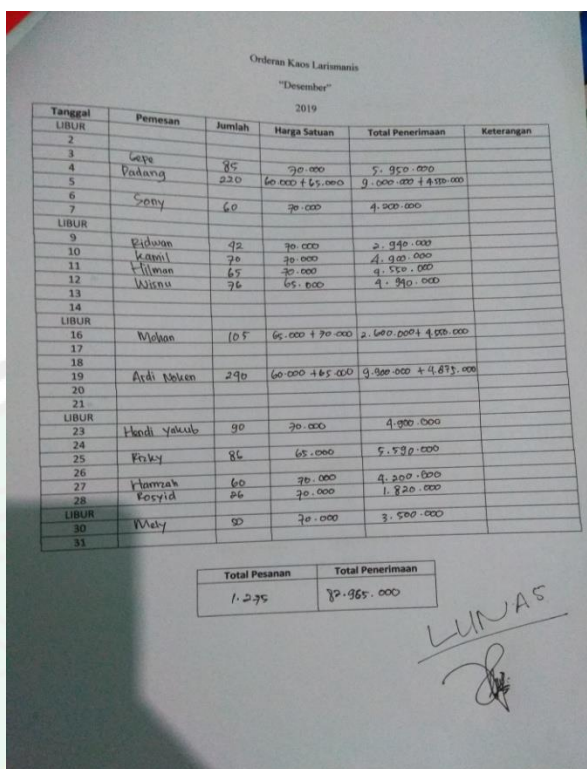 Orderan Kaos Larismanis
"Desember"
2019
Tanggal Pemesan Jumlah Harga Satuan Total Penerimaan Keterangan
LIBUR
2
3 Gepe 85 70.000 5.950.000
4 Padang 220 60.000 + 65.000 9.000.000 + 4.550.000
5
6 Sony 60 70.000 4.200.000
7
LIBUR
9 Ridwan 42 70.000 2.940.000
10 Kamil 70 70.000 4.900.000
11 Hilman 65 70.000 4.550.000
12 Wisnu 76 65.000 4.940.000
13
14
LIBUR
16 Mohan 105 65.000 + 70.000 2.600.000 + 4.550.000
17
18
19 Ardi Noken 240 60.000 + 65.000 9.900.000 + 4.875.000
20
21
LIBUR
23 Hendi Yakub 90 70.000 4.900.000
24
25 Rizky 86 65.000 5.590.000
26
27 Hamzah 60 70.000 4.200.000
28 Rosyid 26 70.000 1.820.000
LIBUR
30 Mely 50 70.000 3.500.000
31
Total Pesanan Total Penerimaan
1.275 82.965.000
LUNAS